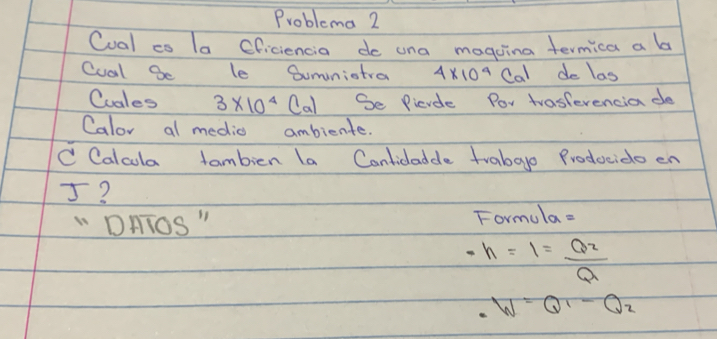 Problema 2
Cual es la eficiencia de una maquina termica a la
Cual se le Suministra 4x10⁴ Cal de las
Cuales 3x10⁴ Cal Se Pierde Por trasferencia de
Calor al medio ambiente.
C Calcula tambien la Cantidadde trabajo Producido en
J?
"DATOS"
Formula=
• h = 1 = Q2
Q1
• W = Q1 - Q2